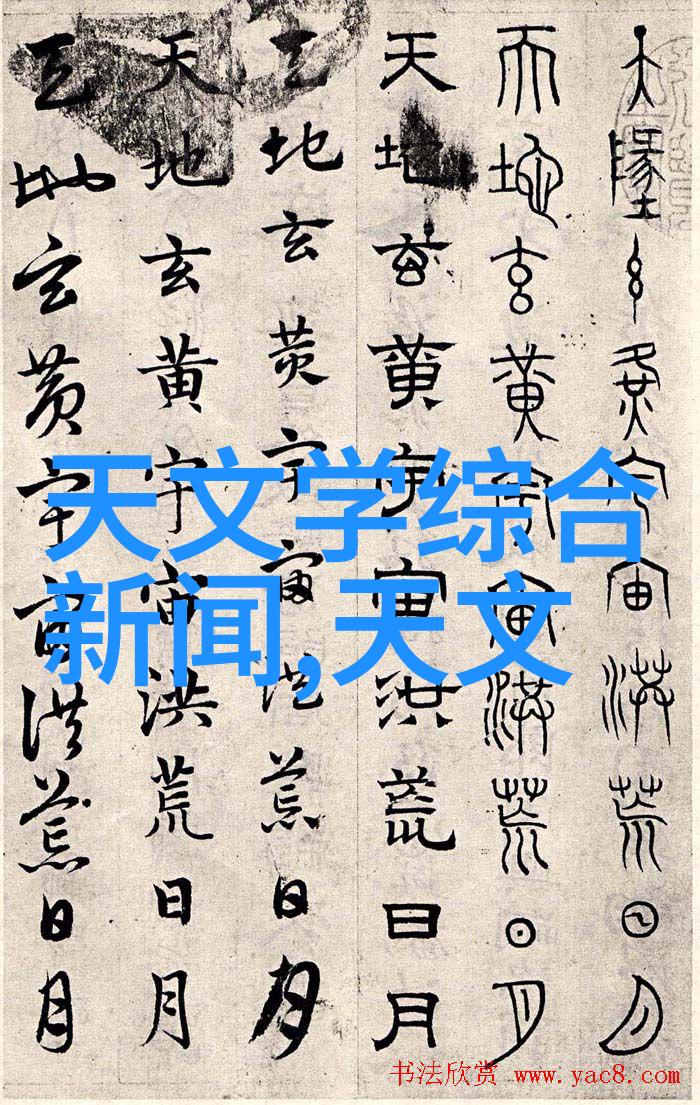 天地玄黄宇宙洪荒日月
天地玄黄宇宙洪荒日月
天地玄黄宇宙洪荒日月
天地玄黄宇宙洪荒日月
天地玄黄宇宙洪荒日月
天地玄黄宇宙洪荒日月
天文学综合
新闻,天文
书法欣赏 www.yac8.com